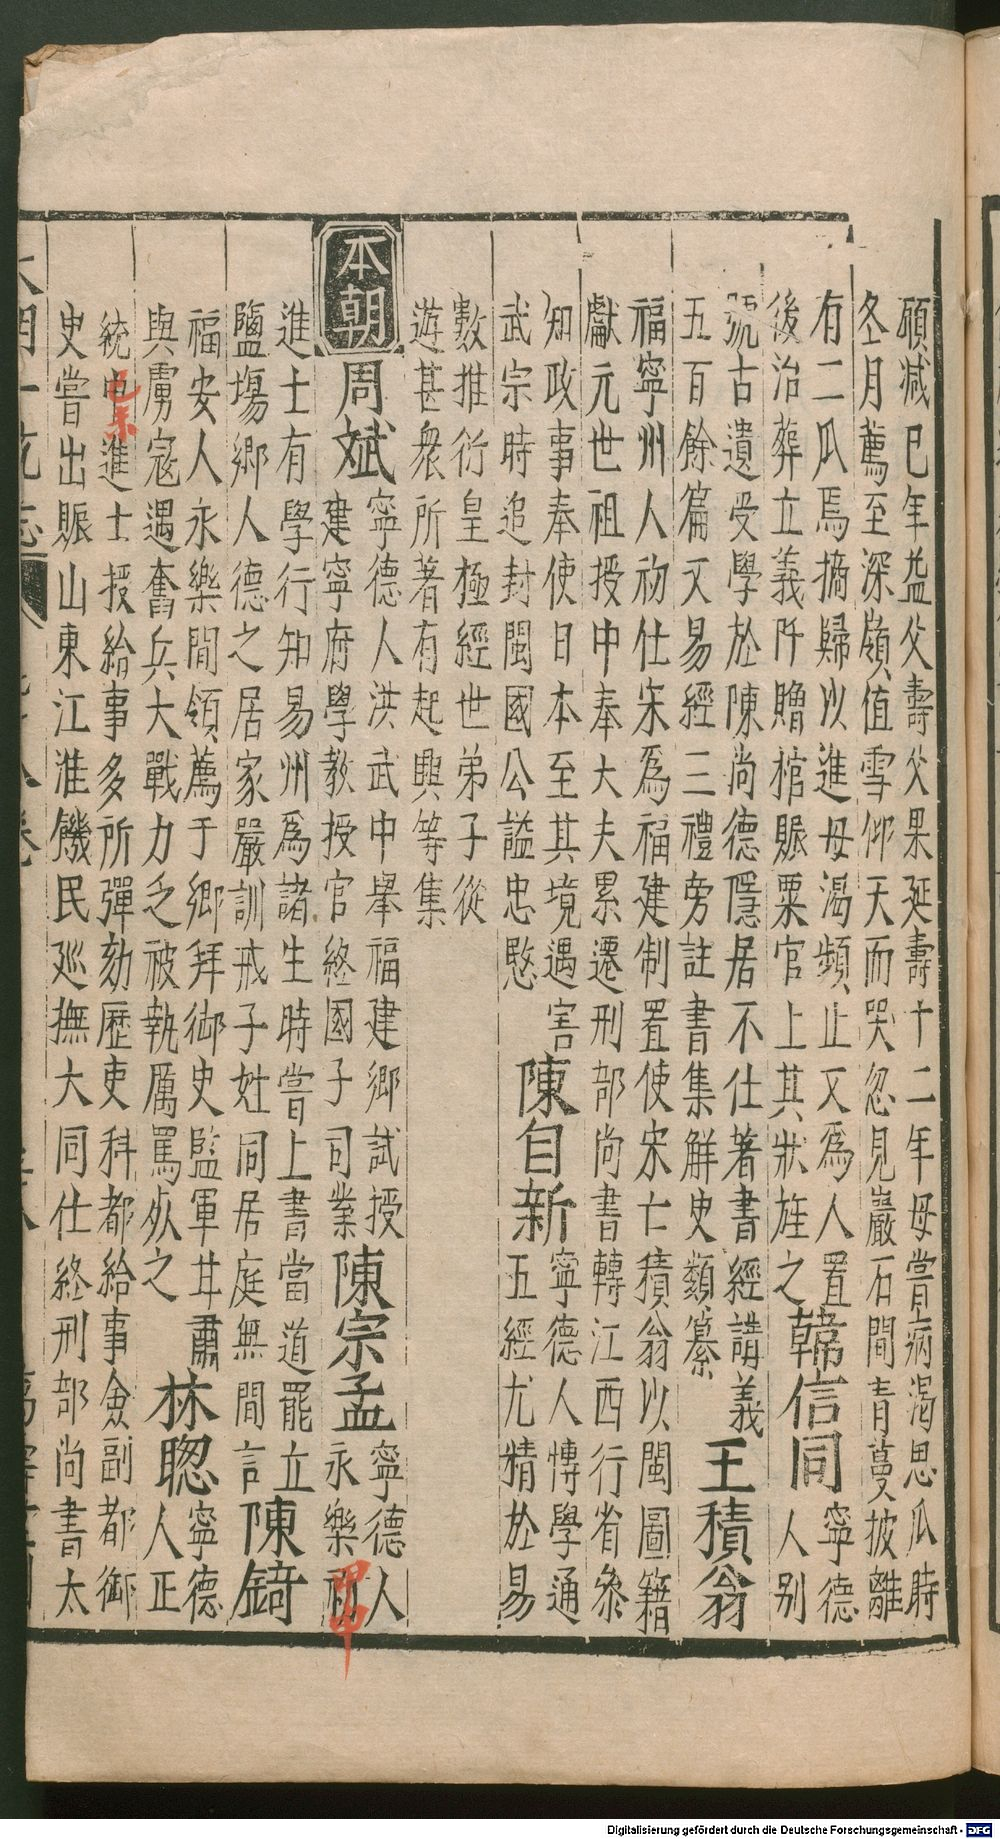 願減已年益父壽父果延壽十二年母嘗病渴思瓜時
冬月薦至深嶺值雪仰天而哭忽見巖石間青蔓披離
有二瓜焉摘歸以進母渴頻止又為人置
後治葬立義阡贈棺賑粟官上其狀旌之韓信同寧德人别
號古遺受學於陳尚德隱居不仕著書經講義
五百餘篇又易經三禮旁註書集解史類纂王積翁
福寧州人初仕宋為福建制置使宋亡積翁以閩圖籍
獻元世祖授中奉大夫累遷刑部尚書轉江西行省參
知政事奉使日本至其境遇害
武宗時追封閩國公謚忠愍陳自新寧德人愽學通五經尤精於易
數推衍皇極經世弟子從
遊甚衆所著有起興等集
本朝周斌寧德人洪武中舉福建鄉試授
建寧府學教授官終國子司業陳宗孟寧德人永樂甲申
進士有學行知易州為諸生時嘗上書當道罷立
鹽塲鄉人德之居家嚴訓戒子姪同居庭無間言陳錡
福安人永樂間領薦于鄉拜御史監軍甘肅
與虜寇遇奮兵大戰力乏被執厲罵死之林聰寧德人正
統己未進士授給事多所彈劾歷吏科都給事僉副都御
史嘗出賑山東江淮饑民廵撫大同仕終刑部尚書太
Digitalisierung gefördert durch die Deutsche Forschungsgemeinschaft - DFG